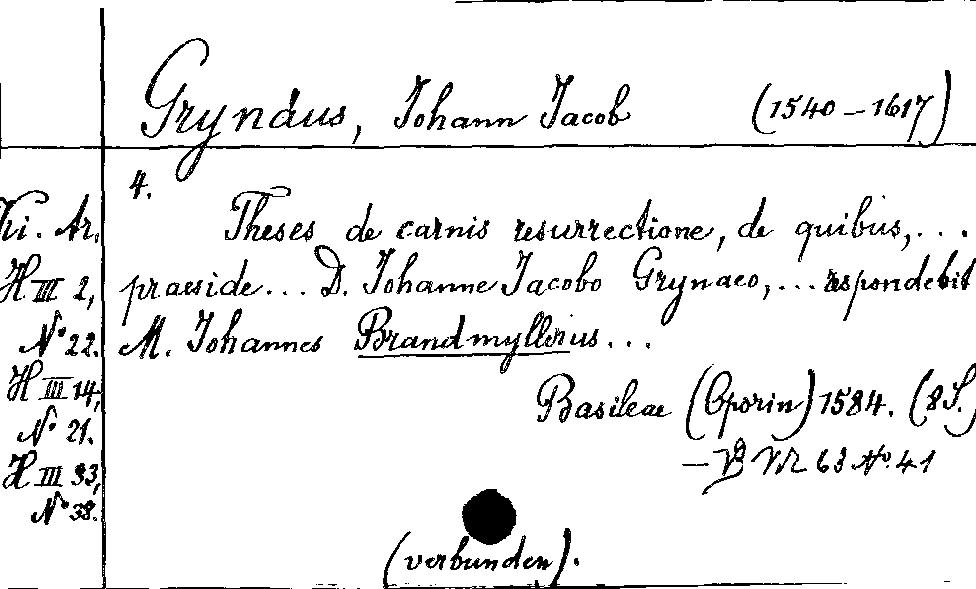 Grynäus, Johann Jacob (1540-1617)
4.
Theses de carnis resurrectione, de quibus,...
praeside... D. Johanne Jacobo Grynaeo,... respondebit
M. Johannes Brandmyllerius...
Basileae (Oporin) 1584. (8 S.)
- VB M 63 No. 41
(verbunden).
Ki. Ar.
H III 2,
No 22.
H III 14,
No 21.
H III 33,
No 38.